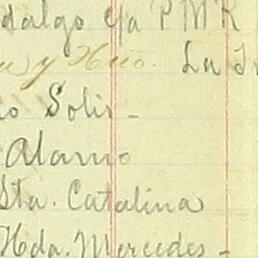 dalgo c/a P M R
y Hno. La
o Solis -
Alamo
Sta. Catalina
Hda. Mercedes -